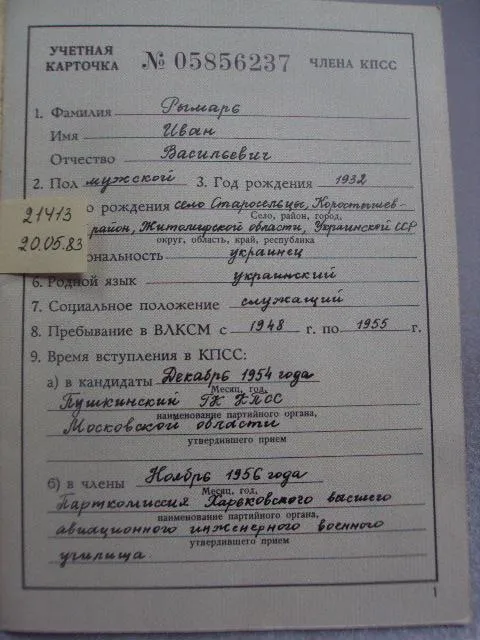 УЧЕТНАЯ КАРТОЧКА № 05856237 ЧЛЕНА КПСС
1. Фамилия Рымарь
Имя Иван
Отчество Васильевич
2. Пол мужской 3. Год рождения 1932
о рождения село Старосельцы, Коростышев-
Село, район, город,
21413
район, Житомирской области, Украинской ССР
округ, область, край, республика
20.05.83
ональность украинец
6. Родной язык украинский
7. Социальное положение служащий
8. Пребывание в ВЛКСМ с 1948 г. по 1955 г.
9. Время вступления в КПСС:
а) в кандидаты Декабрь 1954 года
Месяц, год,
Пушкинский ГК КПСС
наименование партийного органа,
Московской области
утвердившего прием
б) в члены Ноябрь 1956 года
Месяц, год,
Парткомиссия Харьковского высшего
наименование партийного органа,
авиационного инженерного военного
утвердившего прием
училища
1